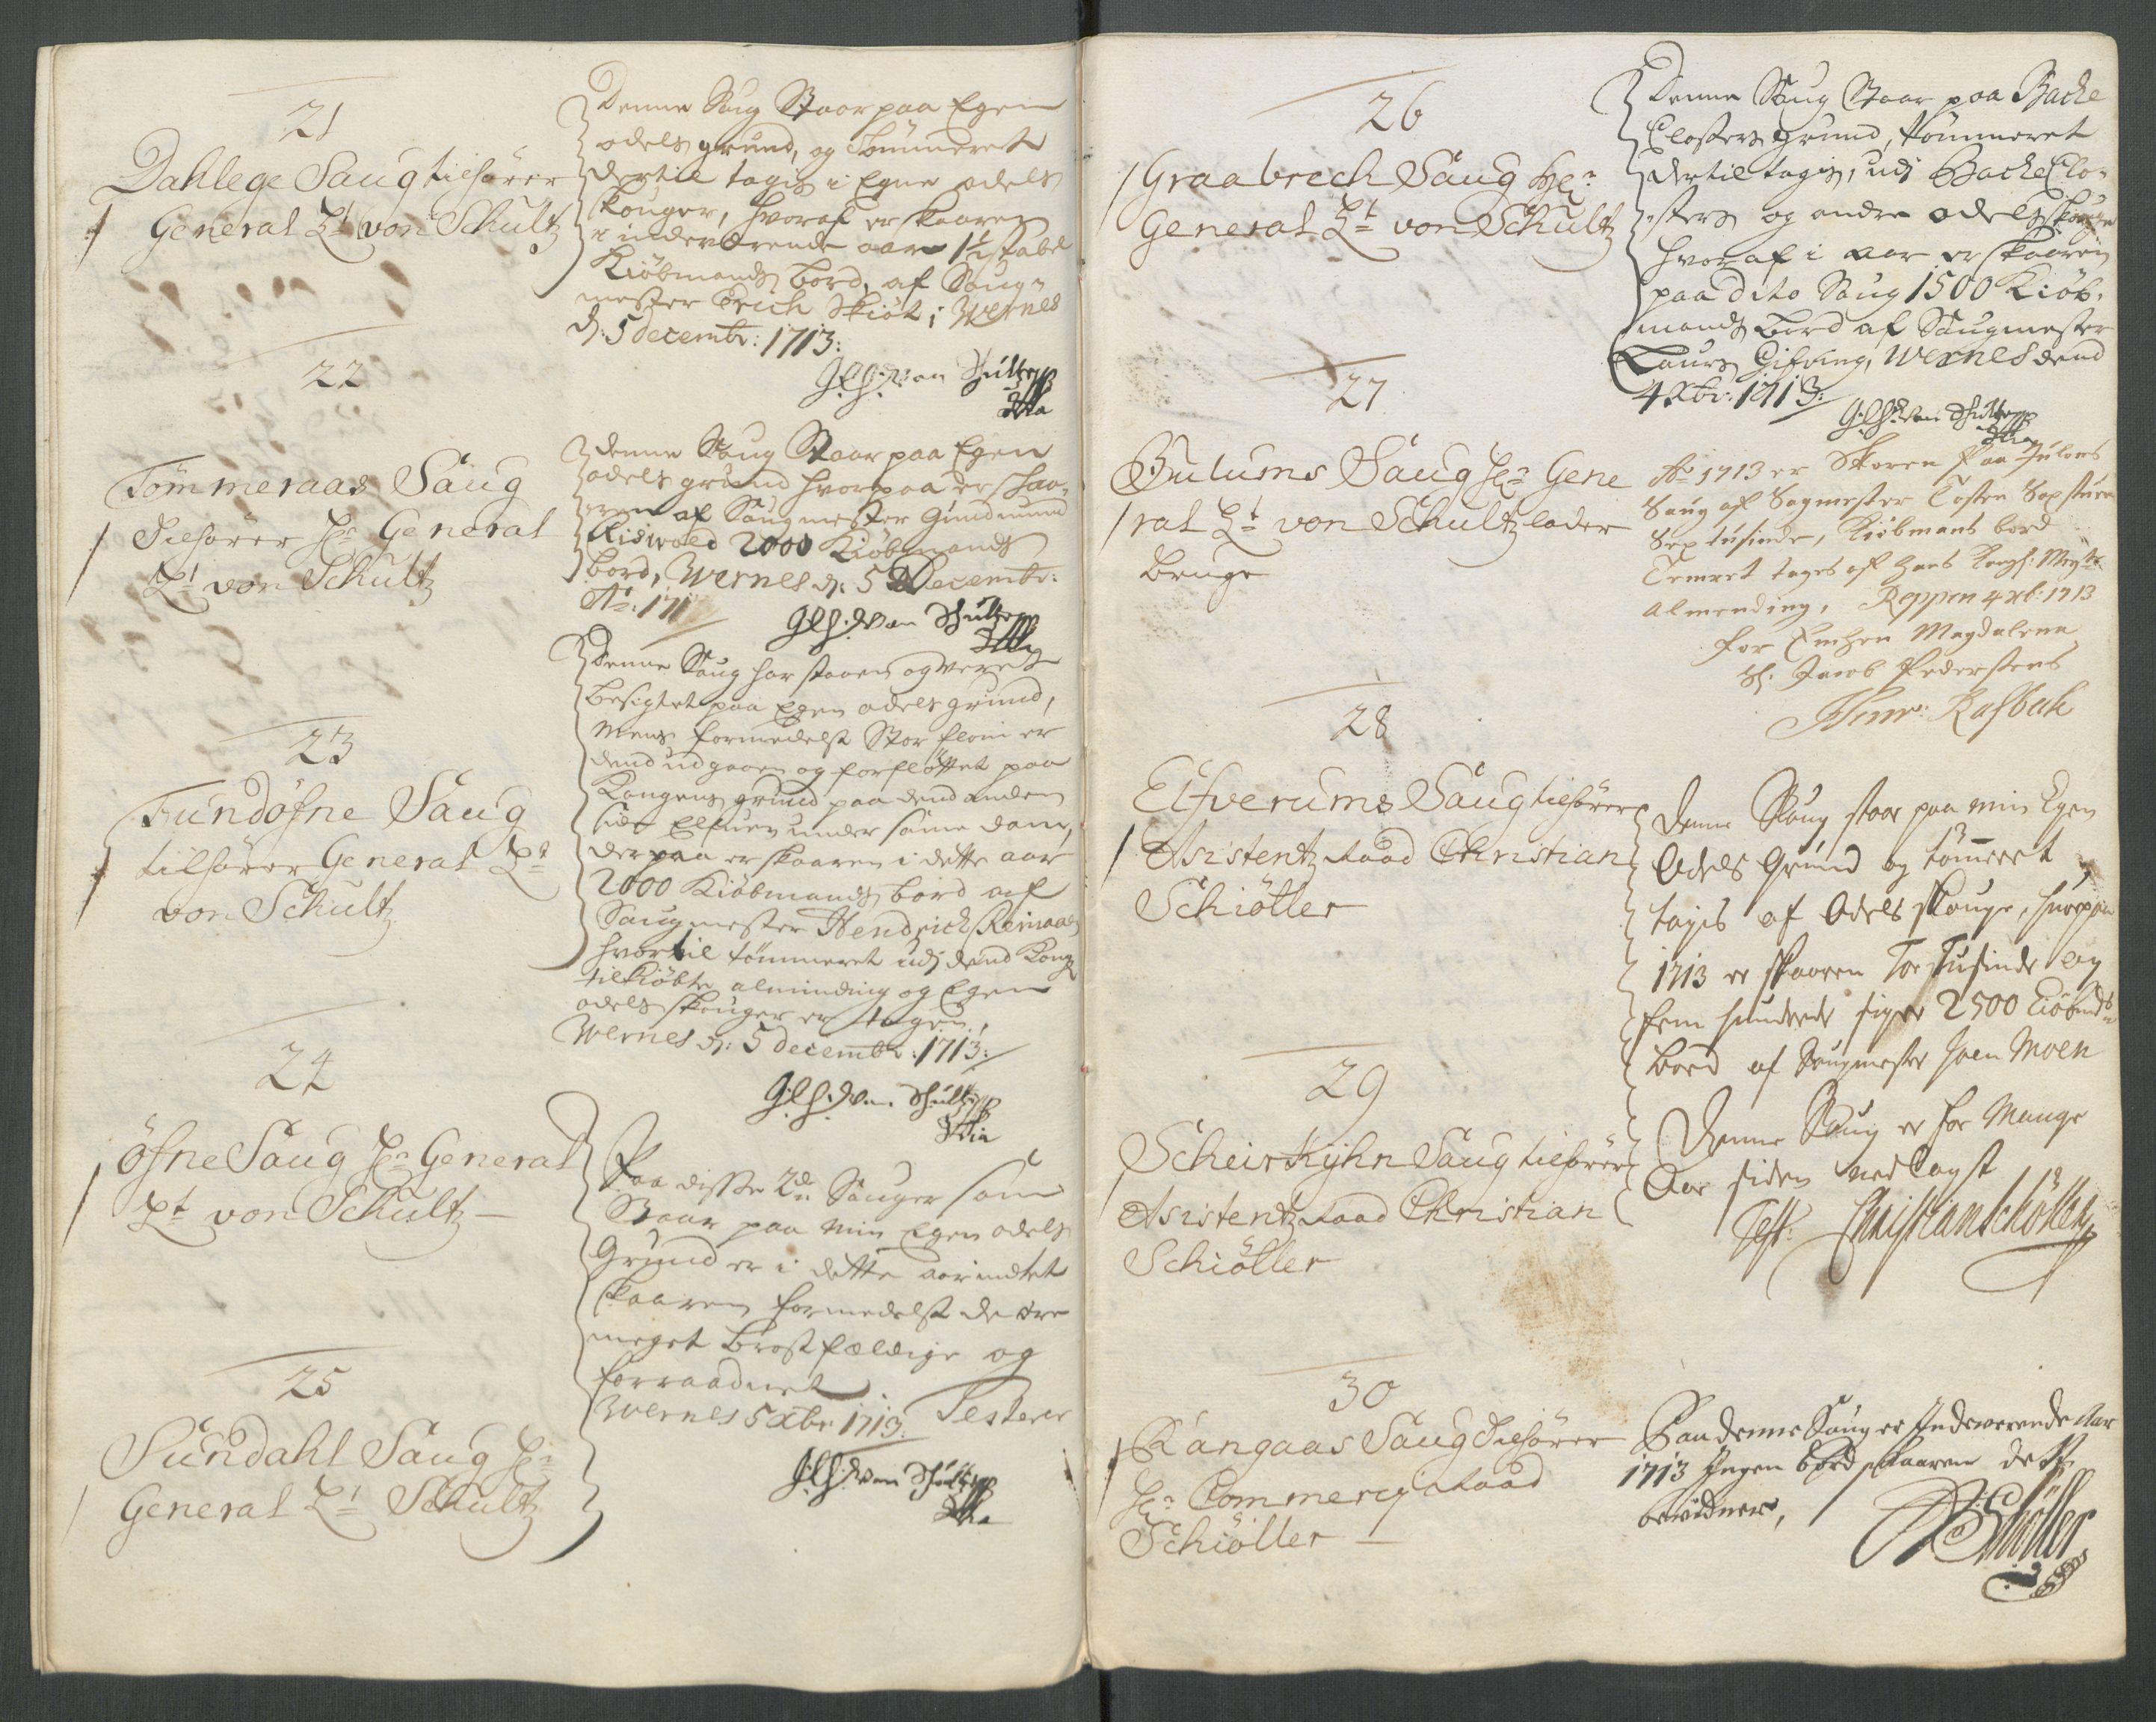 21
Dahlege Saug tilhører
General Lt von Schultz
Denne Saug Staar paa Egen
odels grund, og Tømmeret
dertil tagis i Egne odels
skouger, hvoraf er skaaren
i indeværende aar 1½ tabt
Kiøbmands bord, af Saug-
mester Erich Skiøt; Wernes
d: 5 decembr: 1713:
von Schultz
22
Tømmeraas Saug
Tilhører Hr General
Lt von Schultz
denne Saug Staar paa Egen
odels grund hvorpaa er skaa-
ren af Saugmester Gundmund
Risvold 2000 Kiøbmands
bord, Wernes d: 5 Decembr:
Ao: 171
von Schultz
23
Fundøfne Saug
tilhører General Lt
von Schultz
Denne Saug har staaen og veret
besigtet paa Egen odels grund,
Mens formedelst Stor flom er
dend udgaaen og forfløttet paa
Kongens grund paa dend anden
side Elfuen under samme dam,
derpaa er skaaren i dette aar
2000 Kiøbmands bord af
Saugmester Hendrich Reinaas
hvortil tømmeret udj dend Kong:
tilkiøbte alminding og Egen
odels skouger er tagen,
Wernes d: 5 decembr: 1713:
von Schultz
24
Øfne Saug Hr General
Lt von Schultz
25
Sundahl Saug Hr
General Lt Schultz
Paa disse 2de Sauger som
Staar paa min Egen odels
Grund er i dette aar indtet
skaaren formedelst de ere
meget brøstfældige og
forraadnet
Wernes 5 Xbr 1713. Testerer
von Schultz
26
Graabrech Saug Hr
General Lt von Schultz
Denne Saug Staar paa Bache
Closters grund, tømmeret
dertil tagis, udj Bache Clo-
sters og andre odels skouge
hvoraf i aar er skaaren
paa dito Saug 1500 Kiøb-
mands bord af Saugmester
Laurs Gifving, Wernes dend
4 Xbr: 1713:
von Schultz
27
Gulums Saug Hr Gene
ral Lt von Schultz lader
bruge
Ao 1713 er Skoren paa Julons
Saug af Sagmester Tosten Sopstuen
Sex tusinde, Kiøbmans bord
Temret tages af Hans Kongl: Mayts
Almending, Reppen 4 xb: 1713
for Enchen Magdalena
Sl: Jacob Pedersens
Rasbech
28
Elfverums Saug tilhører
Asistentz Raad Christian
Schiøller
Denne Saug staar paa min Egen
Odels Grund og tømmeret
tagis af Odels skouge, huorpaa
1713 er skaaren Toe Tusinde og
fem hundrede siger 2500 Kiøbmds
bord af Saugmester Joen Moen
29
Scheirkyhn Saug tilhører
Asistentz Raad Christian
Schiøller
Denne Saug er for Mange
Aar siden nedlagt
Test: Christian Schøller
30
Rangaas Saug Tilhører
Hr Commercj Raad
Schiøller
Paa denne Saug er Indeværende Aar
1713 Ingen bord skaaren dette
bevidner,
Schøller